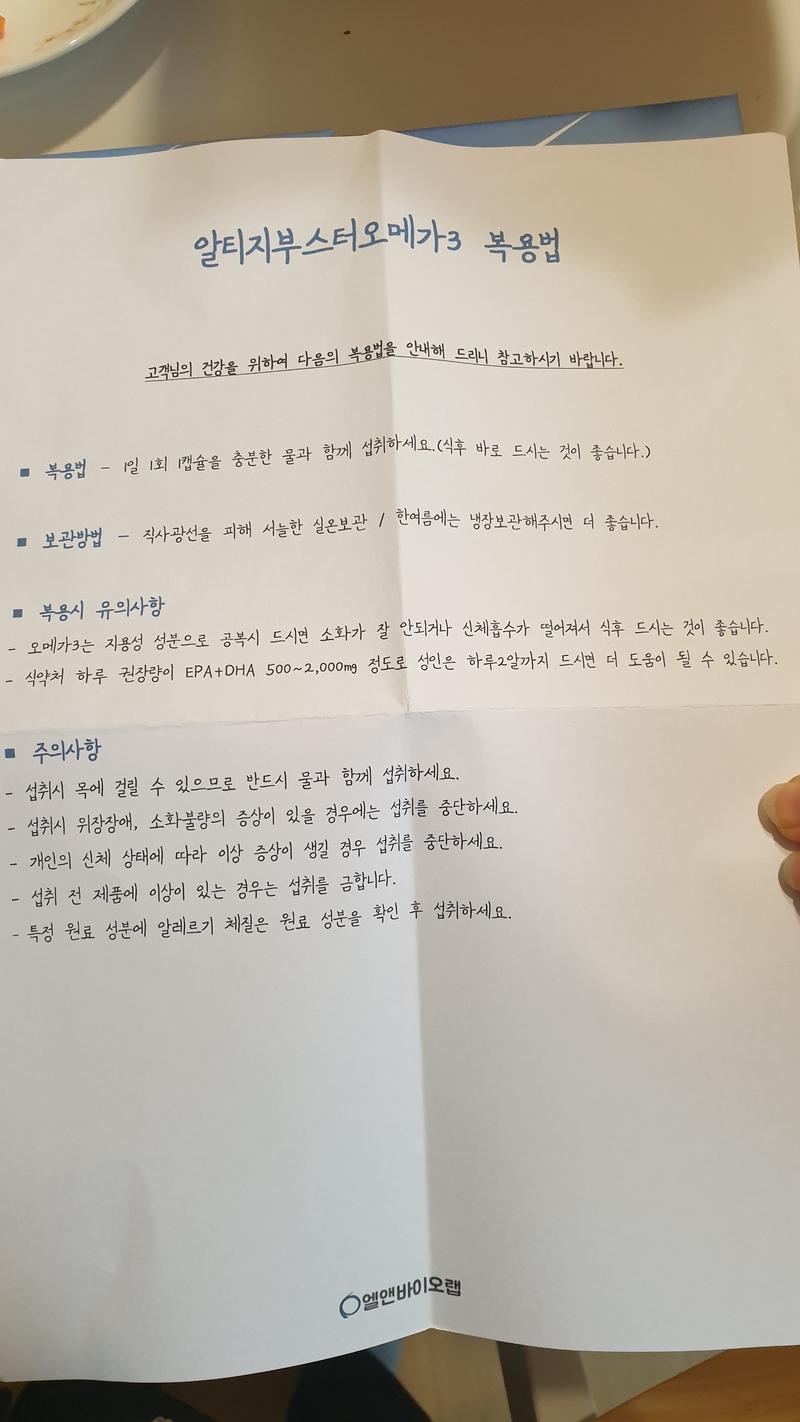 알티지부스터오메가3 복용법
고객님의 건강을 위하여 다음의 복용법을 안내해 드리니 참고하시기 바랍니다.
■ 복용법 - 1일 1회 1캡슐을 충분한 물과 함께 섭취하세요.(식후 바로 드시는 것이 좋습니다.)
■ 보관방법 - 직사광선을 피해 서늘한 실온보관 / 한여름에는 냉장보관해주시면 더 좋습니다.
■ 복용시 유의사항
- 오메가3는 지용성 성분으로 공복시 드시면 소화가 잘 안되거나 신체흡수가 떨어져서 식후 드시는 것이 좋습니다.
- 식약처 하루 권장량이 EPA+DHA 500~2,000mg 정도로 성인은 하루2알까지 드시면 더 도움이 될 수 있습니다.
■ 주의사항
- 섭취시 목에 걸릴 수 있으므로 반드시 물과 함께 섭취하세요.
- 섭취시 위장장애, 소화불량의 증상이 있을 경우에는 섭취를 중단하세요.
- 개인의 신체 상태에 따라 이상 증상이 생길 경우 섭취를 중단하세요.
- 섭취 전 제품에 이상이 있는 경우는 섭취를 금합니다.
- 특정 원료 성분에 알레르기 체질은 원료 성분을 확인 후 섭취하세요.
엘앤바이오랩